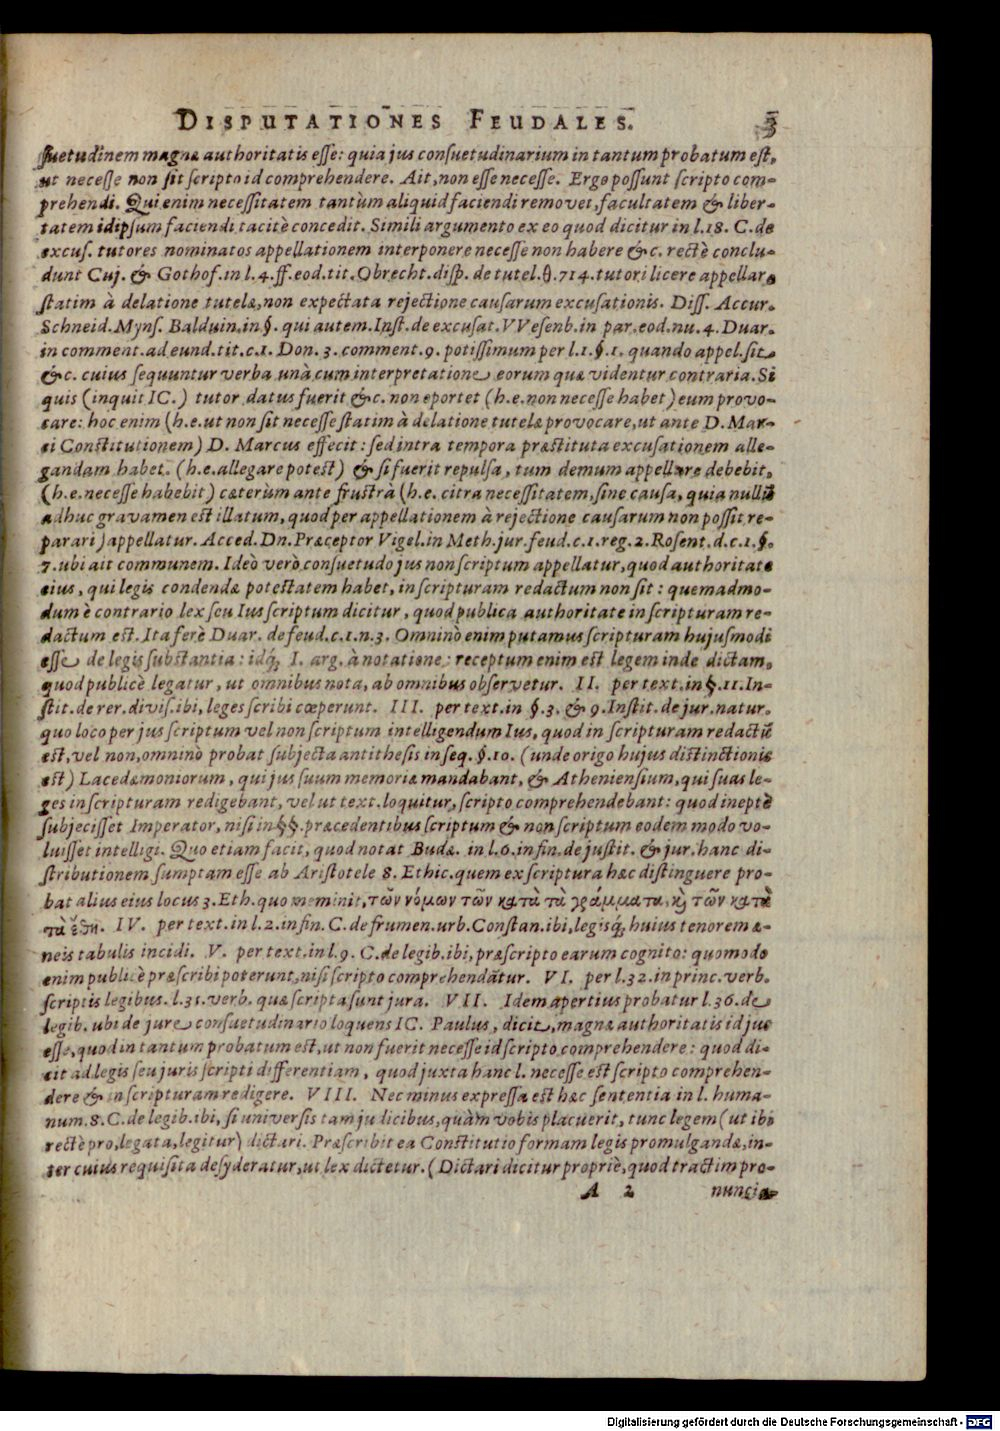 DISPUTATIONES FEUDALES. 3
ſuetudinem magnæ authoritatis eſſe: quia jus conſuetudinarium in tantum probatum eſt,
ut neceſſe non ſit ſcripto id comprehendere. Ait, non eſſe neceſſe. Ergo poſſunt ſcripto com-
prehendi. Qui enim neceſſitatem tantùm aliquid faciendi removet, facultatem & liber-
tatem idipſum faciendi tacitè concedit. Simili argumento ex eo quod dicitur in l. 18. C. de
excuſ. tutores nominatos appellationem interponere neceſſe non habere &c. rectè conclu-
dunt Cuj. & Gothof. in l. 4. ff. eod. tit. Obrecht. diſp. de tutel. θ. 714. tutori licere appellare
ſtatim à delatione tutelæ, non expectata rejectione cauſarum excuſationis. Diſſ. Accur.
Schneid. Mynſ. Balduin. in §. qui autem. Inſt. de excuſat. VVeſenb. in par. eod. nu. 4. Duar.
in comment. ad eund. tit. c. 1. Don. 3. comment. 9. potiſſimum per l. 1. §. 1. quando appel. ſit
&c. cuius ſequuntur verba unà cum interpretatione eorum quæ videntur contraria. Si
quis (inquit IC.) tutor datus fuerit &c. non oportet (h. e. non neceſſe habet) eum provo-
care: hoc enim (h. e. ut non ſit neceſſe ſtatim à delatione tutelæ provocare, ut ante D. Mar-
ci Conſtitutionem) D. Marcus effecit: ſed intra tempora præſtituta excuſationem alle-
gandam habet. (h. e. allegare poteſt) & ſi fuerit repulſa, tum demum appellare debebit.
(h. e. neceſſe habebit) cæterùm ante fruſtrà (h. e. citra neceſſitatem, ſine cauſa, quia nullũ
adhuc gravamen eſt illatum, quod per appellationem à rejectione cauſarum non poſſit re-
parari) appellatur. Acced. Dn. Præceptor Vigel. in Meth. jur. feud. c. 1. reg. 2. Roſent. d. c. 1. §.
7. ubi ait communem. Ideò verò conſuetudo jus non ſcriptum appellatur, quod authoritate
eius, qui legis condendæ poteſtatem habet, in ſcripturam redactum non ſit: quemadmo-
dum è contrario lex ſeu Ius ſcriptum dicitur, quod publica authoritate in ſcripturam re-
dactum eſt. Ita ferè Duar. de feud. c. 1. n. 3. Omninò enim putamus ſcripturam hujuſmodi
eſſe de legis ſubſtantia: idq́; I. arg. à notatione: receptum enim eſt legem inde dictam,
quod publicè legatur, ut omnibus nota, ab omnibus obſervetur. II. per text. in §. 11. In-
ſtit. de rer. diviſ. ibi, leges ſcribi cœperunt. III. per text. in §. 3. & 9. Inſtit. de jur. natur.
quo loco per jus ſcriptum vel non ſcriptum intelligendum Ius, quod in ſcripturam redactũ
eſt, vel non, omninò probat ſubjecta antitheſis in ſeq. §. 10. (unde origo hujus diſtinctionis
eſt) Lacedæmoniorum, qui jus ſuum memoriæ mandabant, & Athenienſium, qui ſuas le-
ges in ſcripturam redigebant, vel ut text. loquitur, ſcripto comprehendebant: quod ineptè
ſubjeciſſet Imperator, niſi in §§. præcedentibus ſcriptum & non ſcriptum eodem modo vo-
luiſſet intelligi. Quo etiam facit, quod notat Budæ. in l. 6. in fin. de juſtit. & jur. hanc di-
ſtributionem ſumptam eſſe ab Ariſtotele 8. Ethic. quem ex ſcriptura hæc diſtinguere pro-
bat alius eius locus 3. Eth. quo meminit, τῶν νόμων τῶν κατὰ τὰ γράμματα, κ̀ τῶν κατὰ
τὰ ἔθη. IV. per text. in l. 2. in fin. C. de frumen. urb. Conſtan. ibi, legisq́; huius tenorem æ-
neis tabulis incidi. V. per text. in l. 9. C. de legib. ibi, præſcripto earum cognito: quomodo
enim publicè præſcribi poterunt, niſi ſcripto comprehendãtur. VI. per l. 32. in princ. verb.
ſcriptis legibus. l. 35. verb. quæ ſcripta ſunt jura. VII. Idem apertius probatur l. 36. de
legib. ubi de jure conſuetudinario loquens IC. Paulus, dicit, magnæ authoritatis id jus
eſſe, quod in tantum probatum eſt, ut non fuerit neceſſe id ſcripto comprehendere: quod di-
cit ad legis ſeu juris ſcripti differentiam, quod juxta hanc l. neceſſe eſt ſcripto comprehen-
dere & in ſcripturam redigere. VIII. Nec minus expreſſa eſt hæc ſententia in l. huma-
num. 8. C. de legib. ibi, ſi univerſis tam judicibus, quàm vobis placuerit, tunc legem (ut ibi
rectè pro, legata, legitur) dictari. Præſcribit ea Conſtitutio formam legis promulgandæ, in-
ter cuius requiſita deſyderatur, ut lex dictetur. (Dictari dicitur propriè, quod tractim pro-
A 2 nuncia-
Digitalisierung gefördert durch die Deutsche Forschungsgemeinschaft - DFG